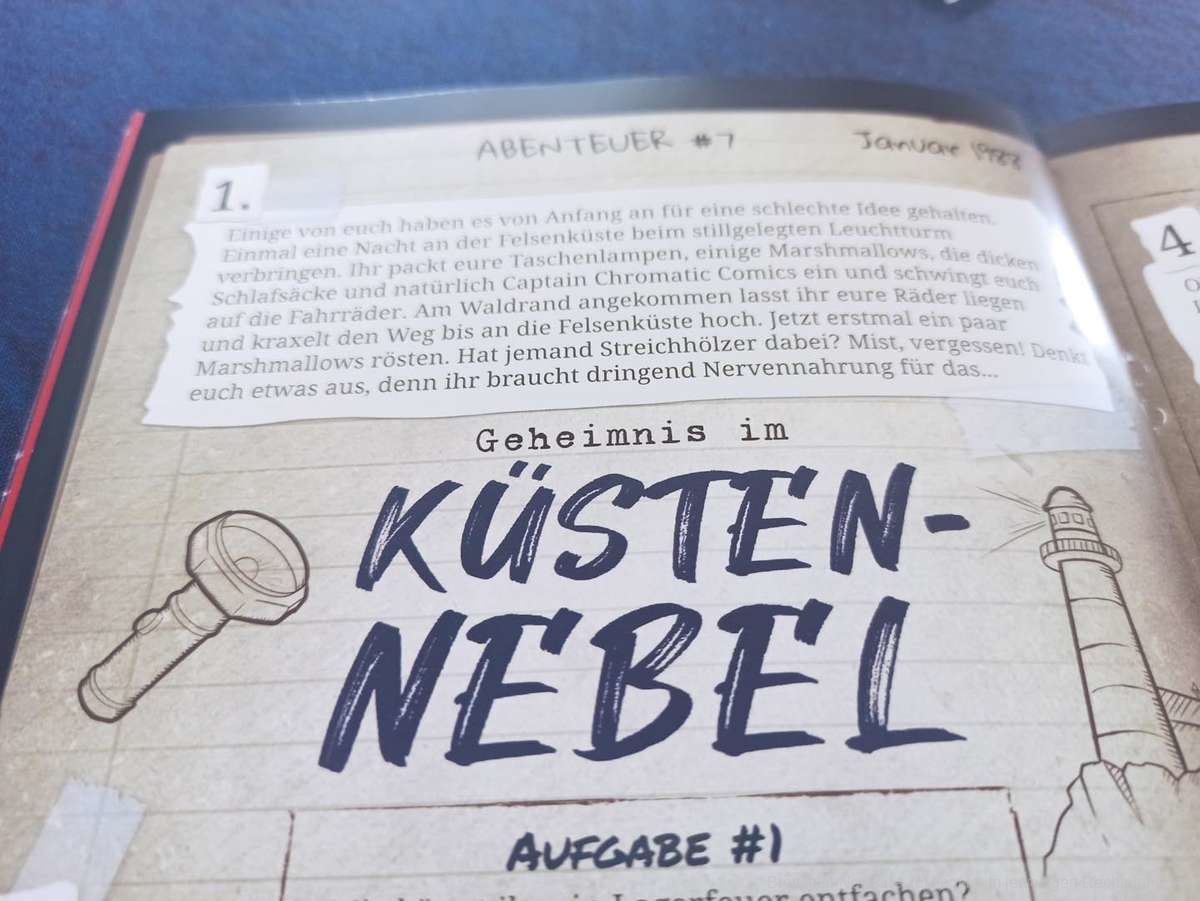 ABENTEUER #7
Januar 1988
1.
Einige von euch haben es von Anfang an für eine schlechte Idee gehalten.
Einmal eine Nacht an der Felsenküste beim stillgelegten Leuchtturm
verbringen. Ihr packt eure Taschenlampen, einige Marshmallows, die dicken
Schlafsäcke und natürlich Captain Chromatic Comics ein und schwingt euch
auf die Fahrräder. Am Waldrand angekommen lasst ihr eure Räder liegen
und kraxelt den Weg bis an die Felsenküste hoch. Jetzt erstmal ein paar
Marshmallows rösten. Hat jemand Streichhölzer dabei? Mist, vergessen! Denkt
euch etwas aus, denn ihr braucht dringend Nervennahrung für das...
Geheimnis im
KÜSTEN-
NEBEL
AUFGABE #1
Lagerfeuer entfachen?
4